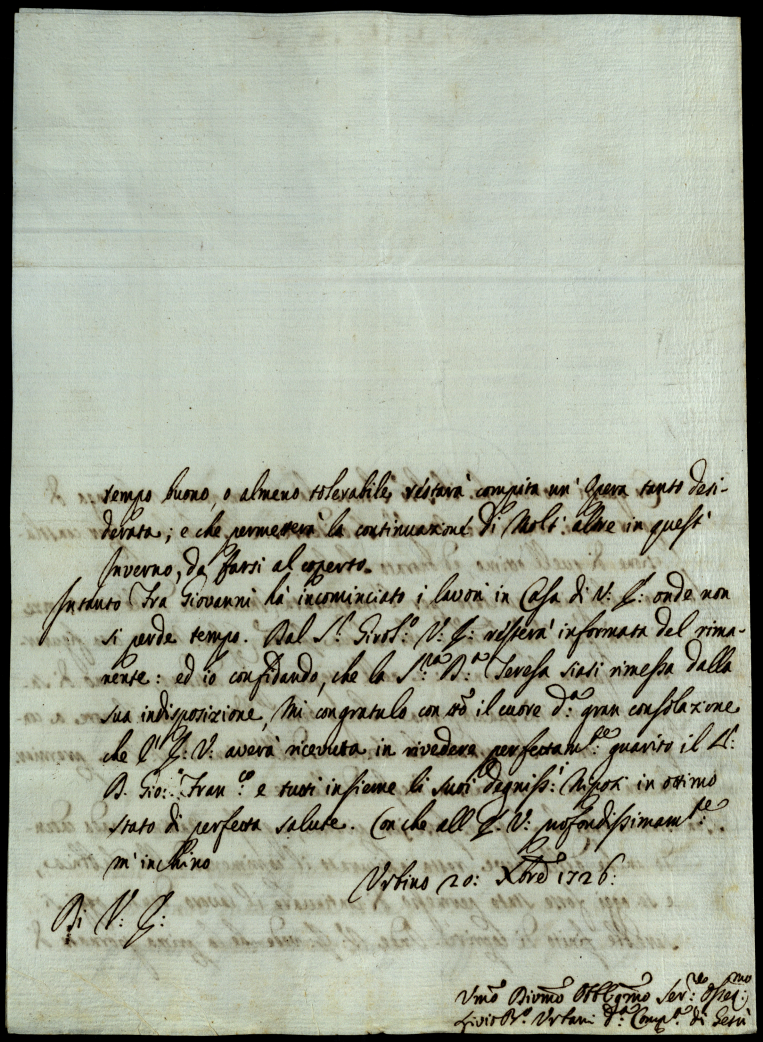 tempo buono, o almeno tolerabile, restarà compita un' Opera tanto desi-
derata; e che permetterà la continuazione di Molt: altre in quest'
Inverno, da farsi al coperto.
Intanto Fra Giovanni hà incominciato i lavori in Casa di V: E: onde non
si perde tempo. Dal S.r Girol.o V: E: resterà informata del rima-
nente: ed io confidando, che la S.ra D.a Teresa siasi rimessa dalla
sua indisposizione, Mi congratulo con tto il cuore d.a gran consolazione
che l' E: V: averà ricevuta in rivedere perfettam.te guarito il S.r
D. Gio: Fran.co e tutti insieme li suoi degniss.i Nipoti in ottimo
stato di perfetta salute. Con che all' E: V: profondissimam.te
m' inchino
Urbino 20: Xbre 1726:
Di V: E:
Umo Divmo Obblgmo Ser.re Osseq.mo
Livio Urbani d.a Comp.a di Gesù